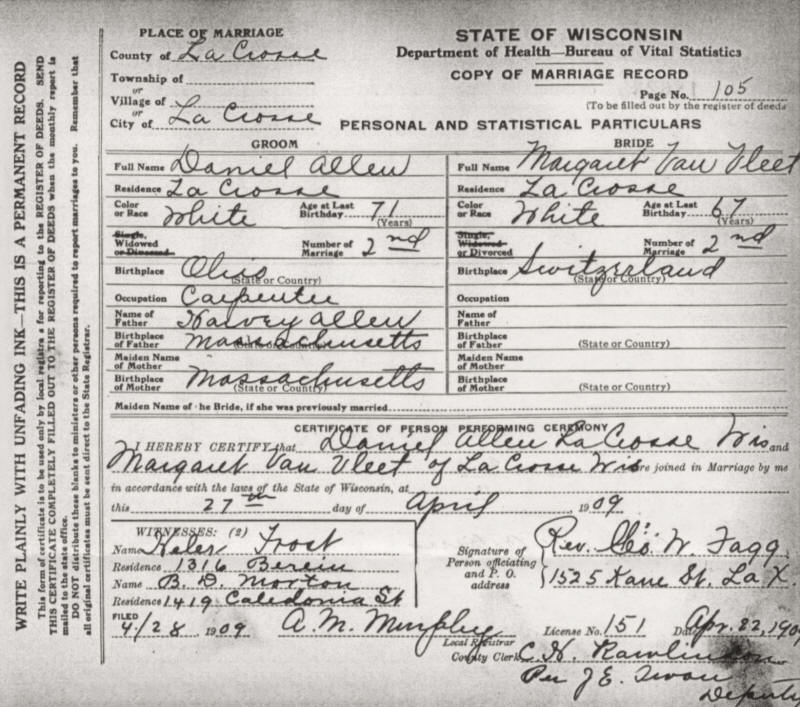 WRITE PLAINLY WITH UNFADING INK—THIS IS A PERMANENT RECORD
This form of certificate is to be used only by local registrars for reporting to the REGISTER OF DEEDS. SEND
THIS CERTIFICATE COMPLETELY FILLED OUT TO THE REGISTER OF DEEDS when the monthly report is
mailed to the state office.
DO NOT distribute these blanks to ministers or other persons required to report marriages to you. Remember that
all original certificates must be sent direct to the State Registrar.
PLACE OF MARRIAGE
County of La Crosse
Township of
or
Village of
or
City of La Crosse
STATE OF WISCONSIN
Department of Health—Bureau of Vital Statistics
COPY OF MARRIAGE RECORD
Page No. 105
(To be filled out by the register of deeds
PERSONAL AND STATISTICAL PARTICULARS
GROOM
Full Name Daniel Allen
Residence La Crosse
Color or Race White Age at Last Birthday 71 (Years)
Single, Widowed or Divorced Number of Marriage 2nd
Birthplace Ohio (State or Country)
Occupation Carpenter
Name of Father Harvey Allen
Birthplace of Father Massachusetts (State or Country)
Maiden Name of Mother
Birthplace of Mother Massachusetts (State or Country)
BRIDE
Full Name Margaret Van Vleet
Residence La Crosse
Color or Race White Age at Last Birthday 67 (Years)
Single, Widowed or Divorced Number of Marriage 2nd
Birthplace Switzerland (State or Country)
Occupation
Name of Father
Birthplace of Father (State or Country)
Maiden Name of Mother
Birthplace of Mother (State or Country)
Maiden Name of he Bride, if she was previously married
CERTIFICATE OF PERSON PERFORMING CEREMONY
I HEREBY CERTIFY, that Daniel Allen La Crosse Wis and
Margaret Van Vleet of La Crosse Wis re joined in Marriage by me
in accordance with the laws of the State of Wisconsin, at
this 27th day of April 1909
WITNESSES: (2)
Name Frost
Residence 1316 Berlin
Name B. D. Morton
Residence 1419 Caledonia St
Signature of Person officiating and P. O. address
Rev. Geo. W. Fagg
1525 Kane St. La X.
FILED
4/28 1909 A. M. Murphy
Local Registrar
License No. 151 Date Apr. 22, 190
County Clerk C. H. Rawlinson
Per J E. Swan
Deputy